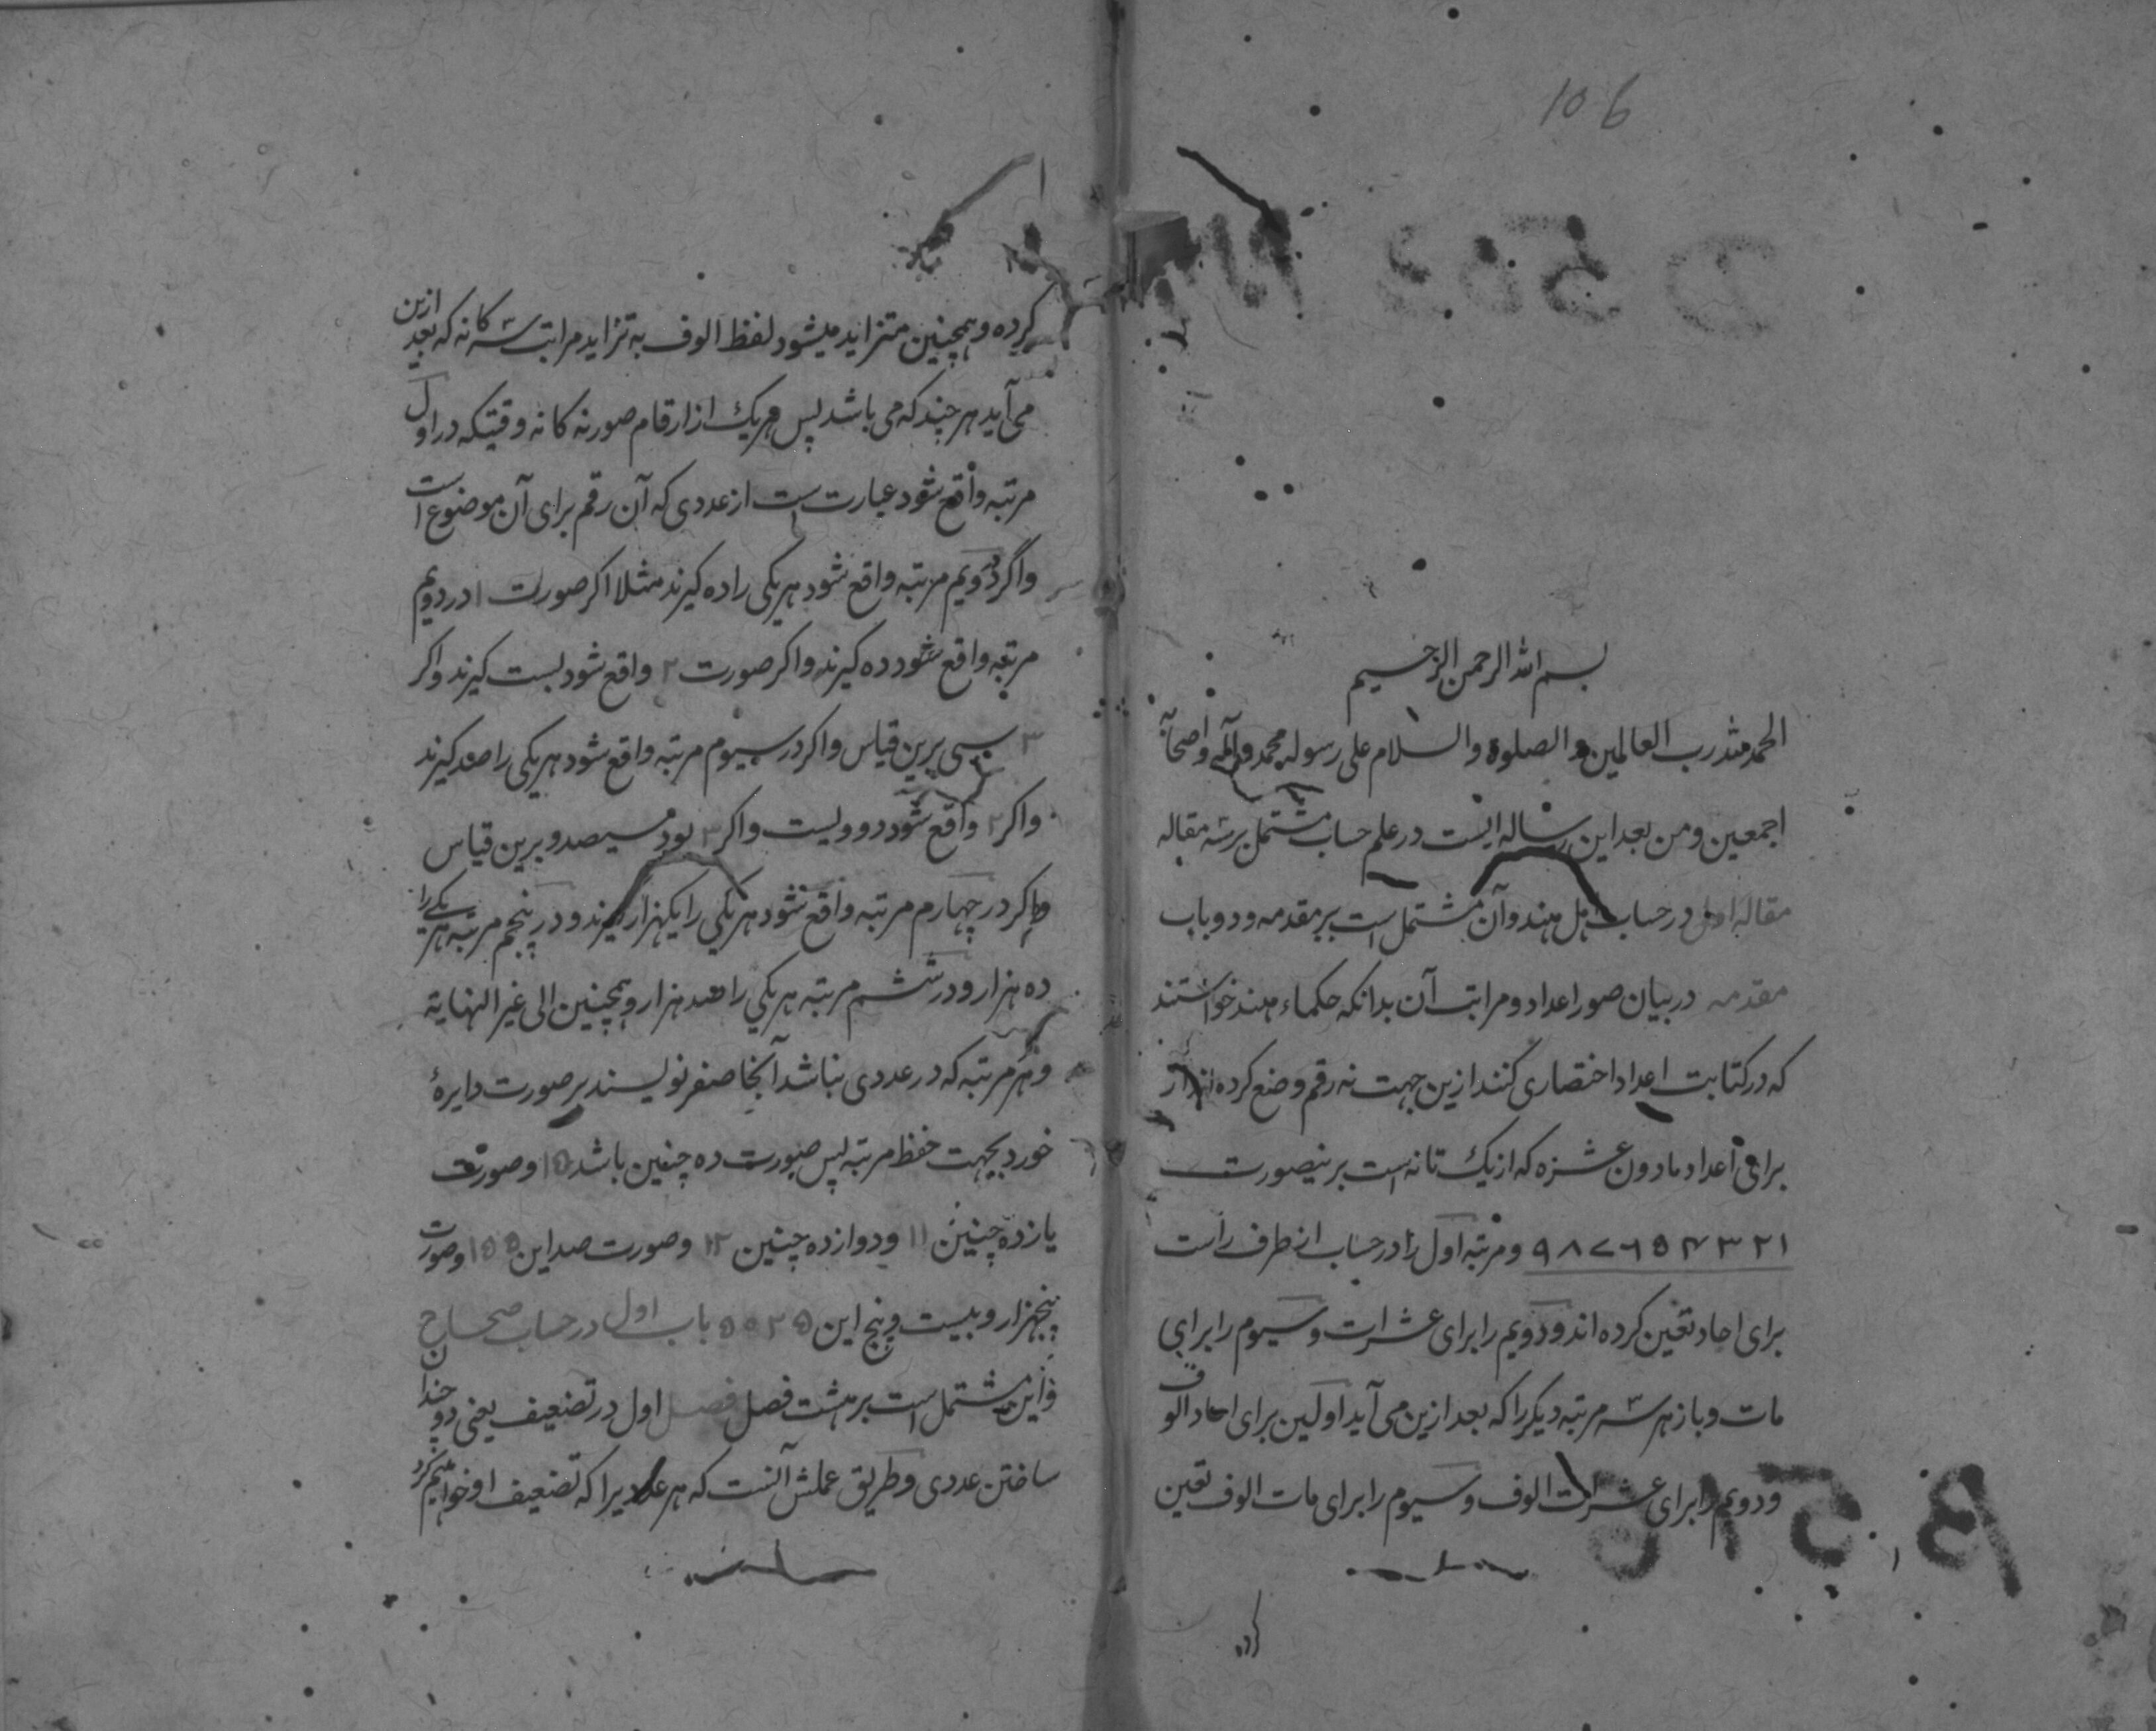 106
بسم الله الرحمن الرحیم
الحمد لله رب العالمین والصلوة والسلام علی رسوله محمد وآله واصحابه
اجمعین ومن بعد این رساله ایست در علم حساب مشتمل بر سه مقاله
مقاله اولی در حساب اهل هند وآن مشتمل است بر مقدمه ودو باب
مقدمه در بیان صور اعداد ومراتب آن بدانکه حکماء هند خواستند
که در کتابت اعداد اختصاری کنند ازین جهت نه رقم وضع کرده اند از
برای اعداد مادون عشره که از یک تا نه است برینصورت
۱ ۲ ۳ ۴ ۵ ۶ ۷ ۸ ۹ ومرتبه اول را در حساب از طرف راست
برای احاد تعین کرده اند ودویم را برای عشرات وسیوم را برای
مات وباز هر سه مرتبه دیکر را که بعد ازین می آید اولین برای احاد الوف
ودویم را برای عشرات الوف وسیوم را برای مات الوف تعین
کرده
کرده وهمچنین متزاید میشود لفظ الوف به تزاید مراتب سه کانه که بعد ازین
می آید هر چند که می باشد پس هر یک از ارقام صور نه کانه وقتیکه در اول
مرتبه واقع شود عبارت است از عددی که آن رقم برای آن موضوع است
واگر در دویم مرتبه واقع شود هر یکی را ده کیرند مثلا اکر صورت ۱ در دویم
مرتبه واقع شود ده کیرند واکر صورت ۲ واقع شود بست کیرند واکر
۳ سی برین قیاس واکر در سیوم مرتبه واقع شود هر یکی را صد کیرند
واکر ۲ واقع شود دوویست واکر ۳ بود سیصد وبرین قیاس
واکر در چهارم مرتبه واقع شود هر یکی را یکهزار کیرند ودر پنجم مرتبه هر یکی را
ده هزار ودر ششم مرتبه هر یکی را صد هزار وهمچنین الی غیر النهایة
وهر مرتبه که در عددی نباشد آنجا صفر نویسند بر صورت دایرهٔ
خورد بجهت حفظ مرتبه پس صورت ده چنین باشد ۱۰ وصورت
یازده چنین ۱۱ ودوازده چنین ۱۲ وصورت صد این ۱۰۰ وصورت
پنجهزار وبیست وپنج این ۵۰۲۵ باب اول در حساب صحاح
واین مشتمل است بر هشت فصل فصل اول در تضعیف یعنی دو چندان
ساختن عددی وطریق عملش آنست که هر عددیرا که تضعیف او خواهیم کرد